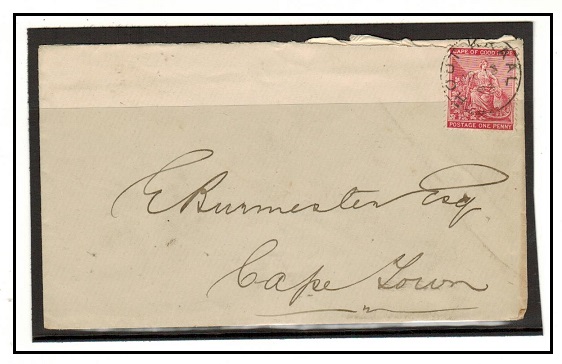 CAPE OF GOOD HOPE
POSTAGE ONE PENNY
E Burmester Esq
Cape Town